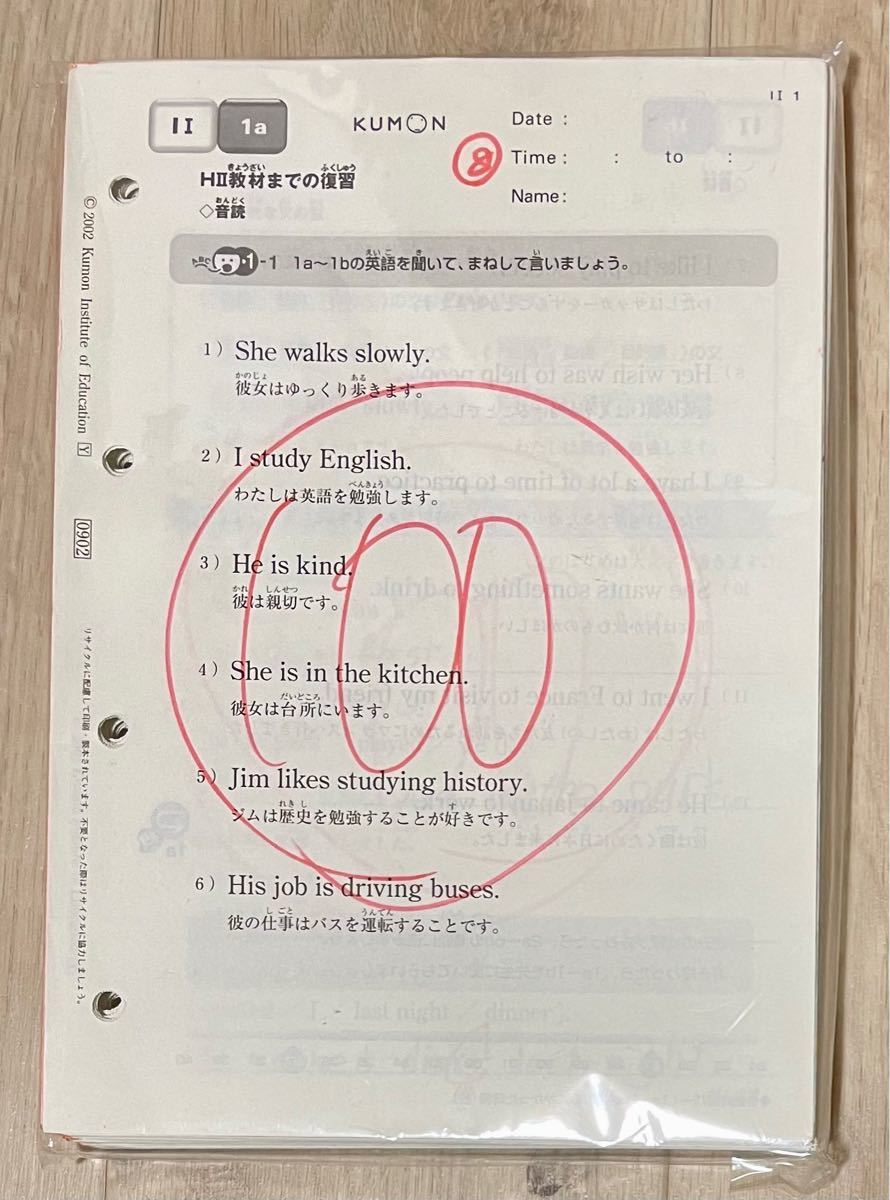 II 1
II 1a KUMON Date :
⑧ Time : : to :
Name:
きょうざい ふくしゅう
HⅡ教材までの復習
おんどく
◇音読
えいご き い
ABC ・1-1 1a〜1bの英語を聞いて、まねして言いましょう。
1) She walks slowly.
かのじょ ある
彼女はゆっくり歩きます。
2) I study English.
べんきょう
わたしは英語を勉強します。
3) He is kind.
かれ しんせつ
彼は親切です。
4) She is in the kitchen.
だいどころ
彼女は台所にいます。
5) Jim likes studying history.
れきし す
ジムは歴史を勉強することが好きです。
6) His job is driving buses.
しごと うんてん
彼の仕事はバスを運転することです。
100
© 2002 Kumon Institute of Education Y 0902
リサイクルに配慮して印刷・製本されています。不要となった際はリサイクルに協力しましょう。